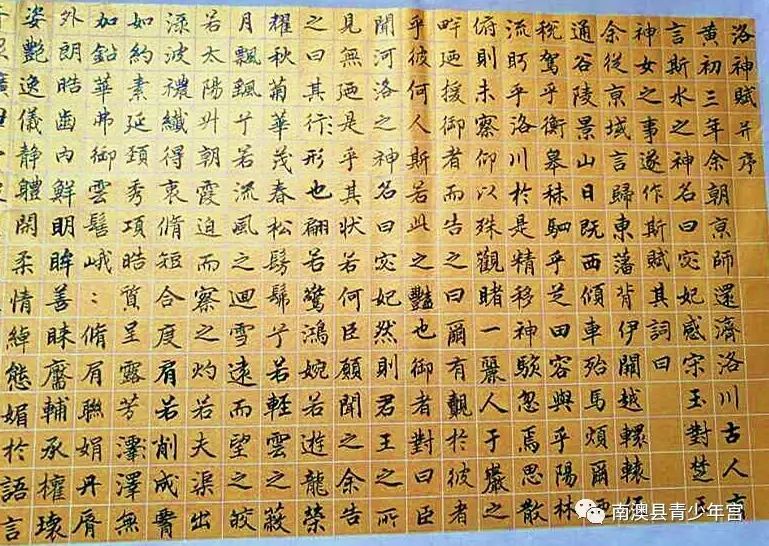 洛神賦并序
黄初三年余朝京師還濟洛川古人有
言斯水之神名曰宓妃感宋玉對楚王
神女之事遂作斯賦其詞曰
余從京域言歸東藩背伊闕越轘轅
通谷陵景山日既西傾車殆馬煩爾
税駕乎衡皋秣駟乎芝田容與乎陽林
流眄乎洛川於是精移神駭忽焉思散
俯則未察仰以殊觀睹一麗人于巖之
畔迺援御者而告之曰爾有覿於彼者
乎彼何人斯若此之豔也御者對曰臣
聞河洛之神名曰宓妃然則君王之所
見無迺是乎其狀若何臣願聞之余告
之曰其行形也翩若驚鴻婉若遊龍榮
耀秋菊華茂春松髣髴兮若輕雲之蔽
月飄颻兮若流風之迴雪遠而望之皎
若太陽升朝霞迫而察之灼若夫渠出
渌波穠纖得衷脩短合度肩若削成腰
如約素延頸秀項皓質呈露芳澤無
加鉛華弗御雲髻峨：脩眉聯娟丹脣
外朗皓齒內鮮明眸善睞靨輔承權瓌
姿豔逸儀静體閑柔情綽態媚於語言
南澳县青少年宫